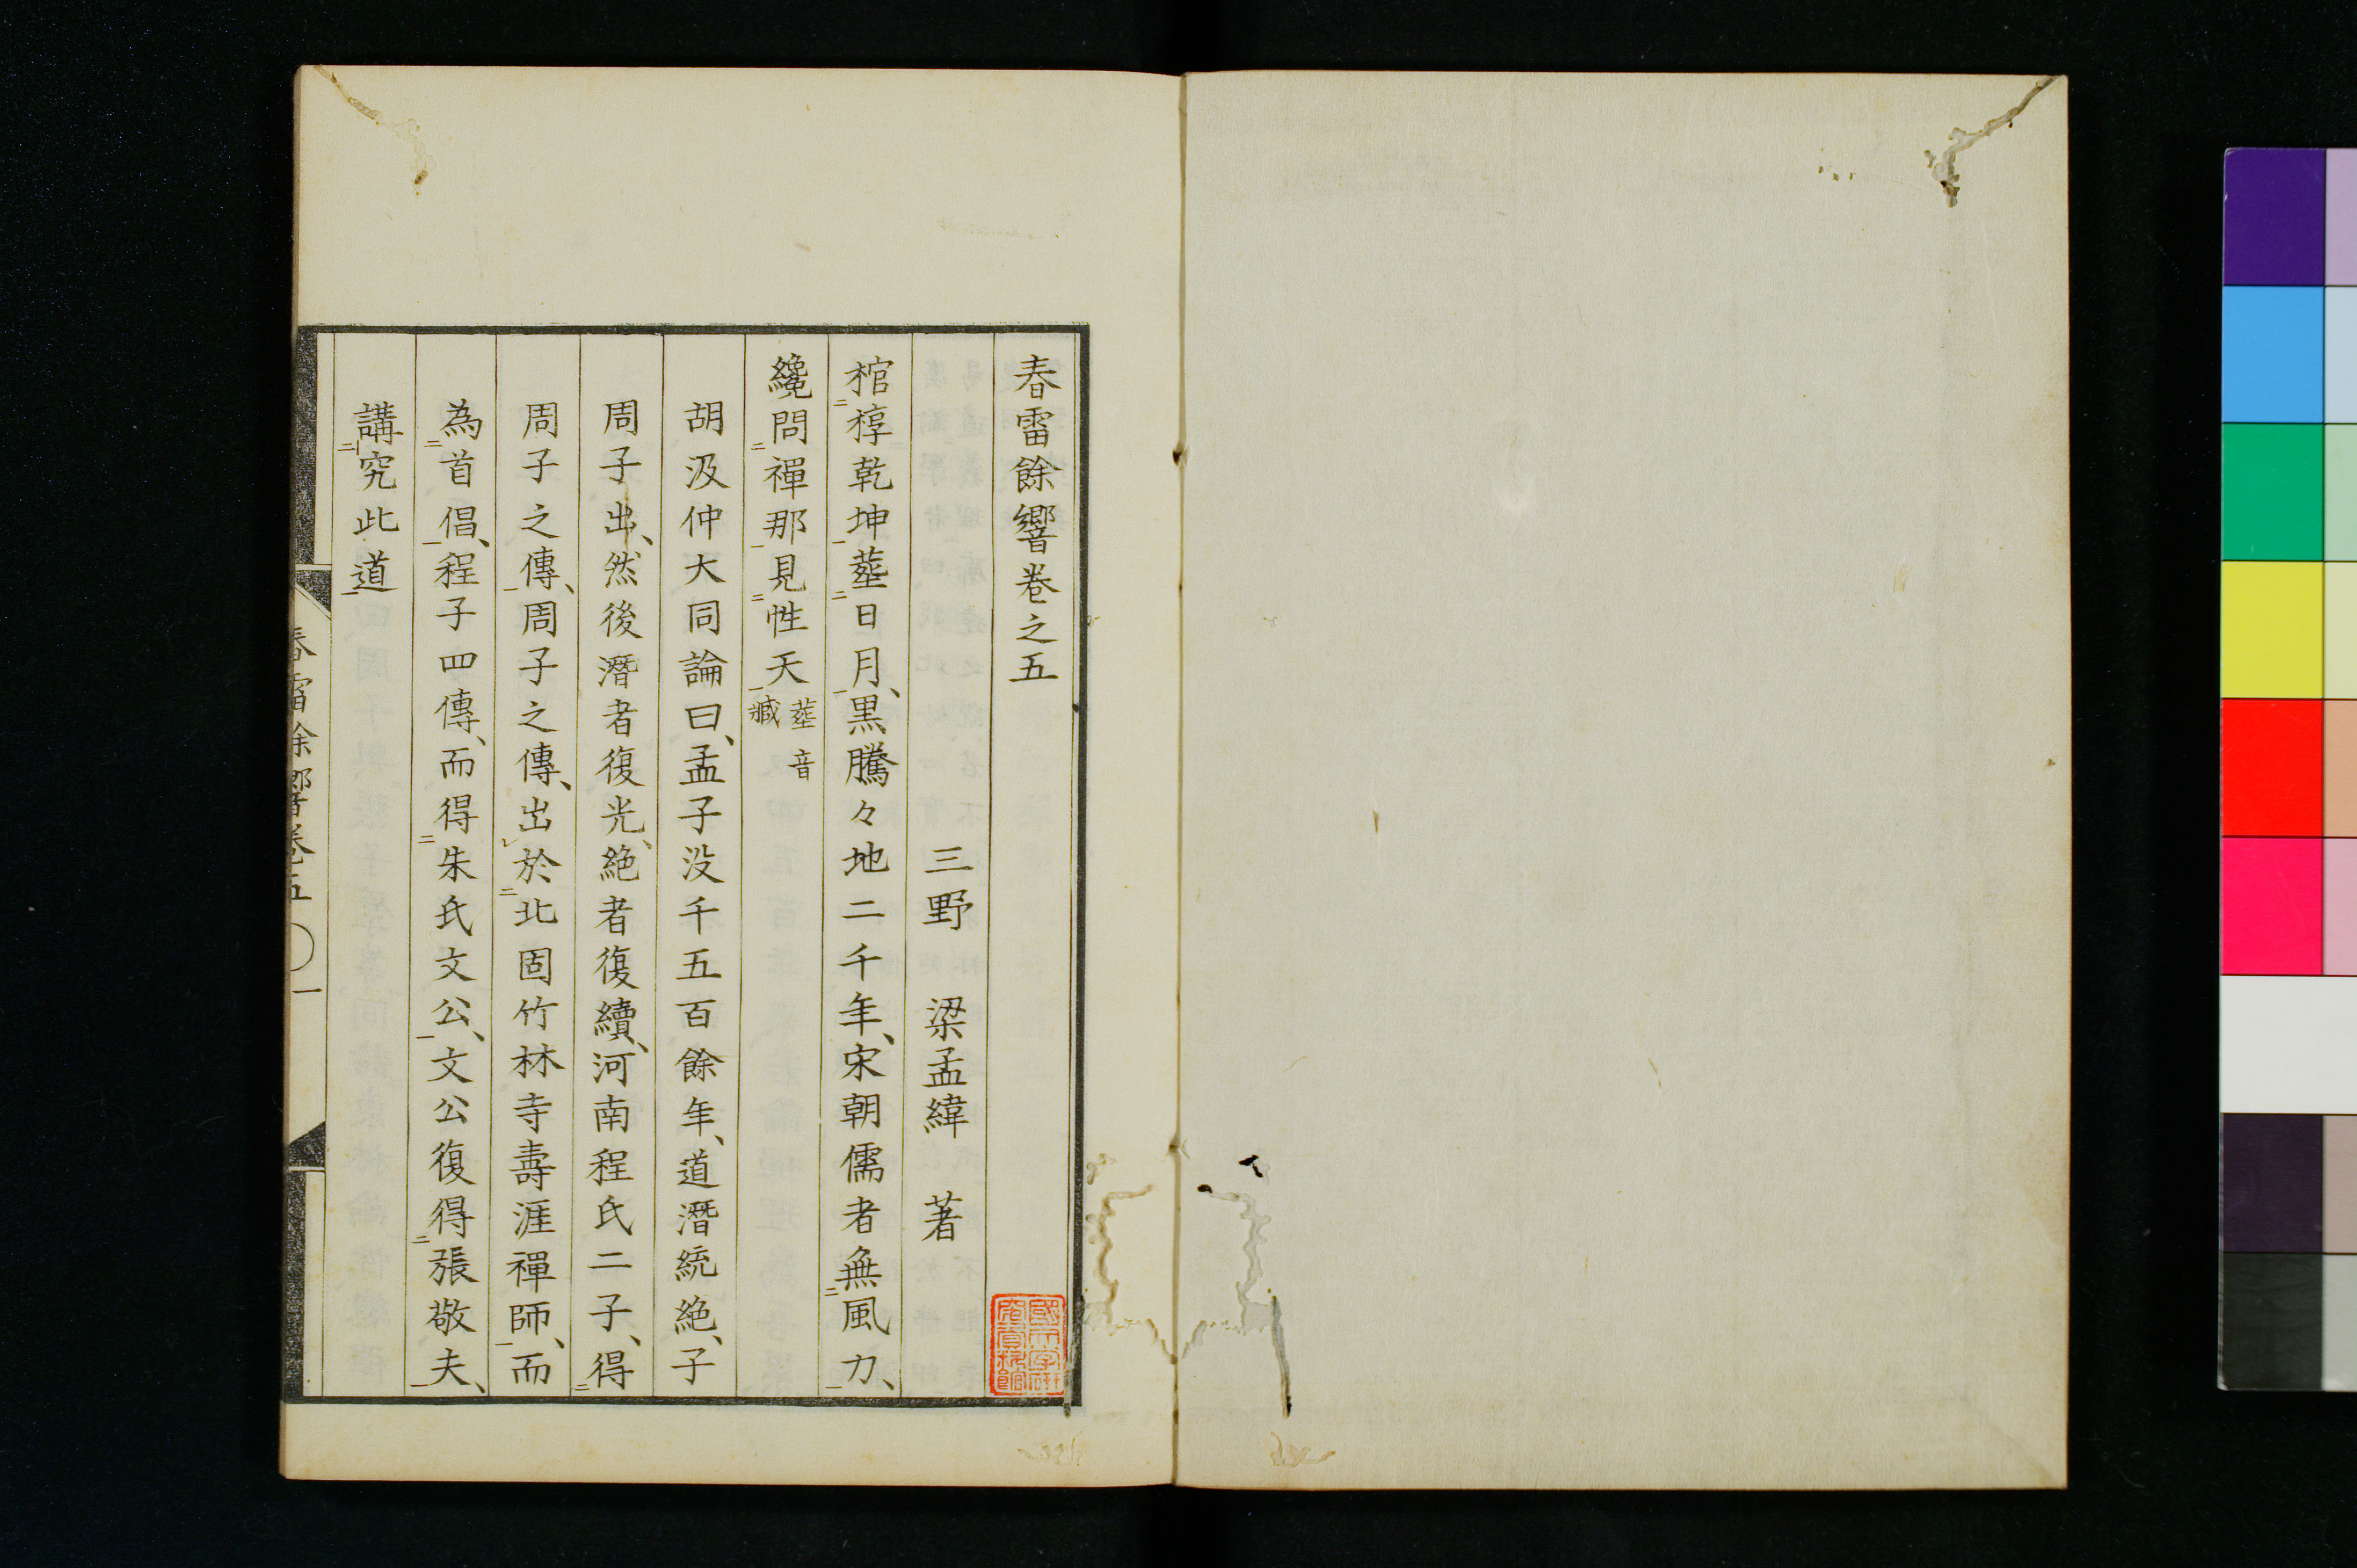 春雷餘響卷之五
三野 梁孟緯 著
棺椁乾坤塟日月、黒騰々地二千年、宋朝儒者無風力、
纔問禪那見性天 塟音
臧
胡汲仲大同論曰、孟子没千五百餘年、道潛統絶、子
周子出、然後潛者復光、絶者復續、河南程氏二子、得
周子之傳、周子之傳、出於北固竹林寺壽涯禪師、而
為首倡、程子四傳、而得朱氏文公、文公復得張敬夫、
講究此道
春雷餘響卷五 〇一